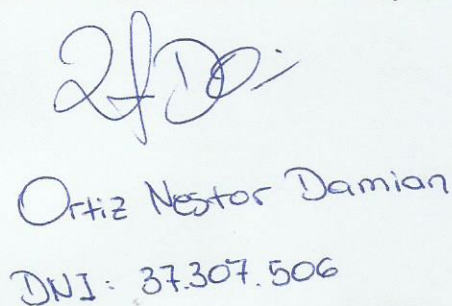 Ortiz Nestor Damian
DNI: 37.307.506